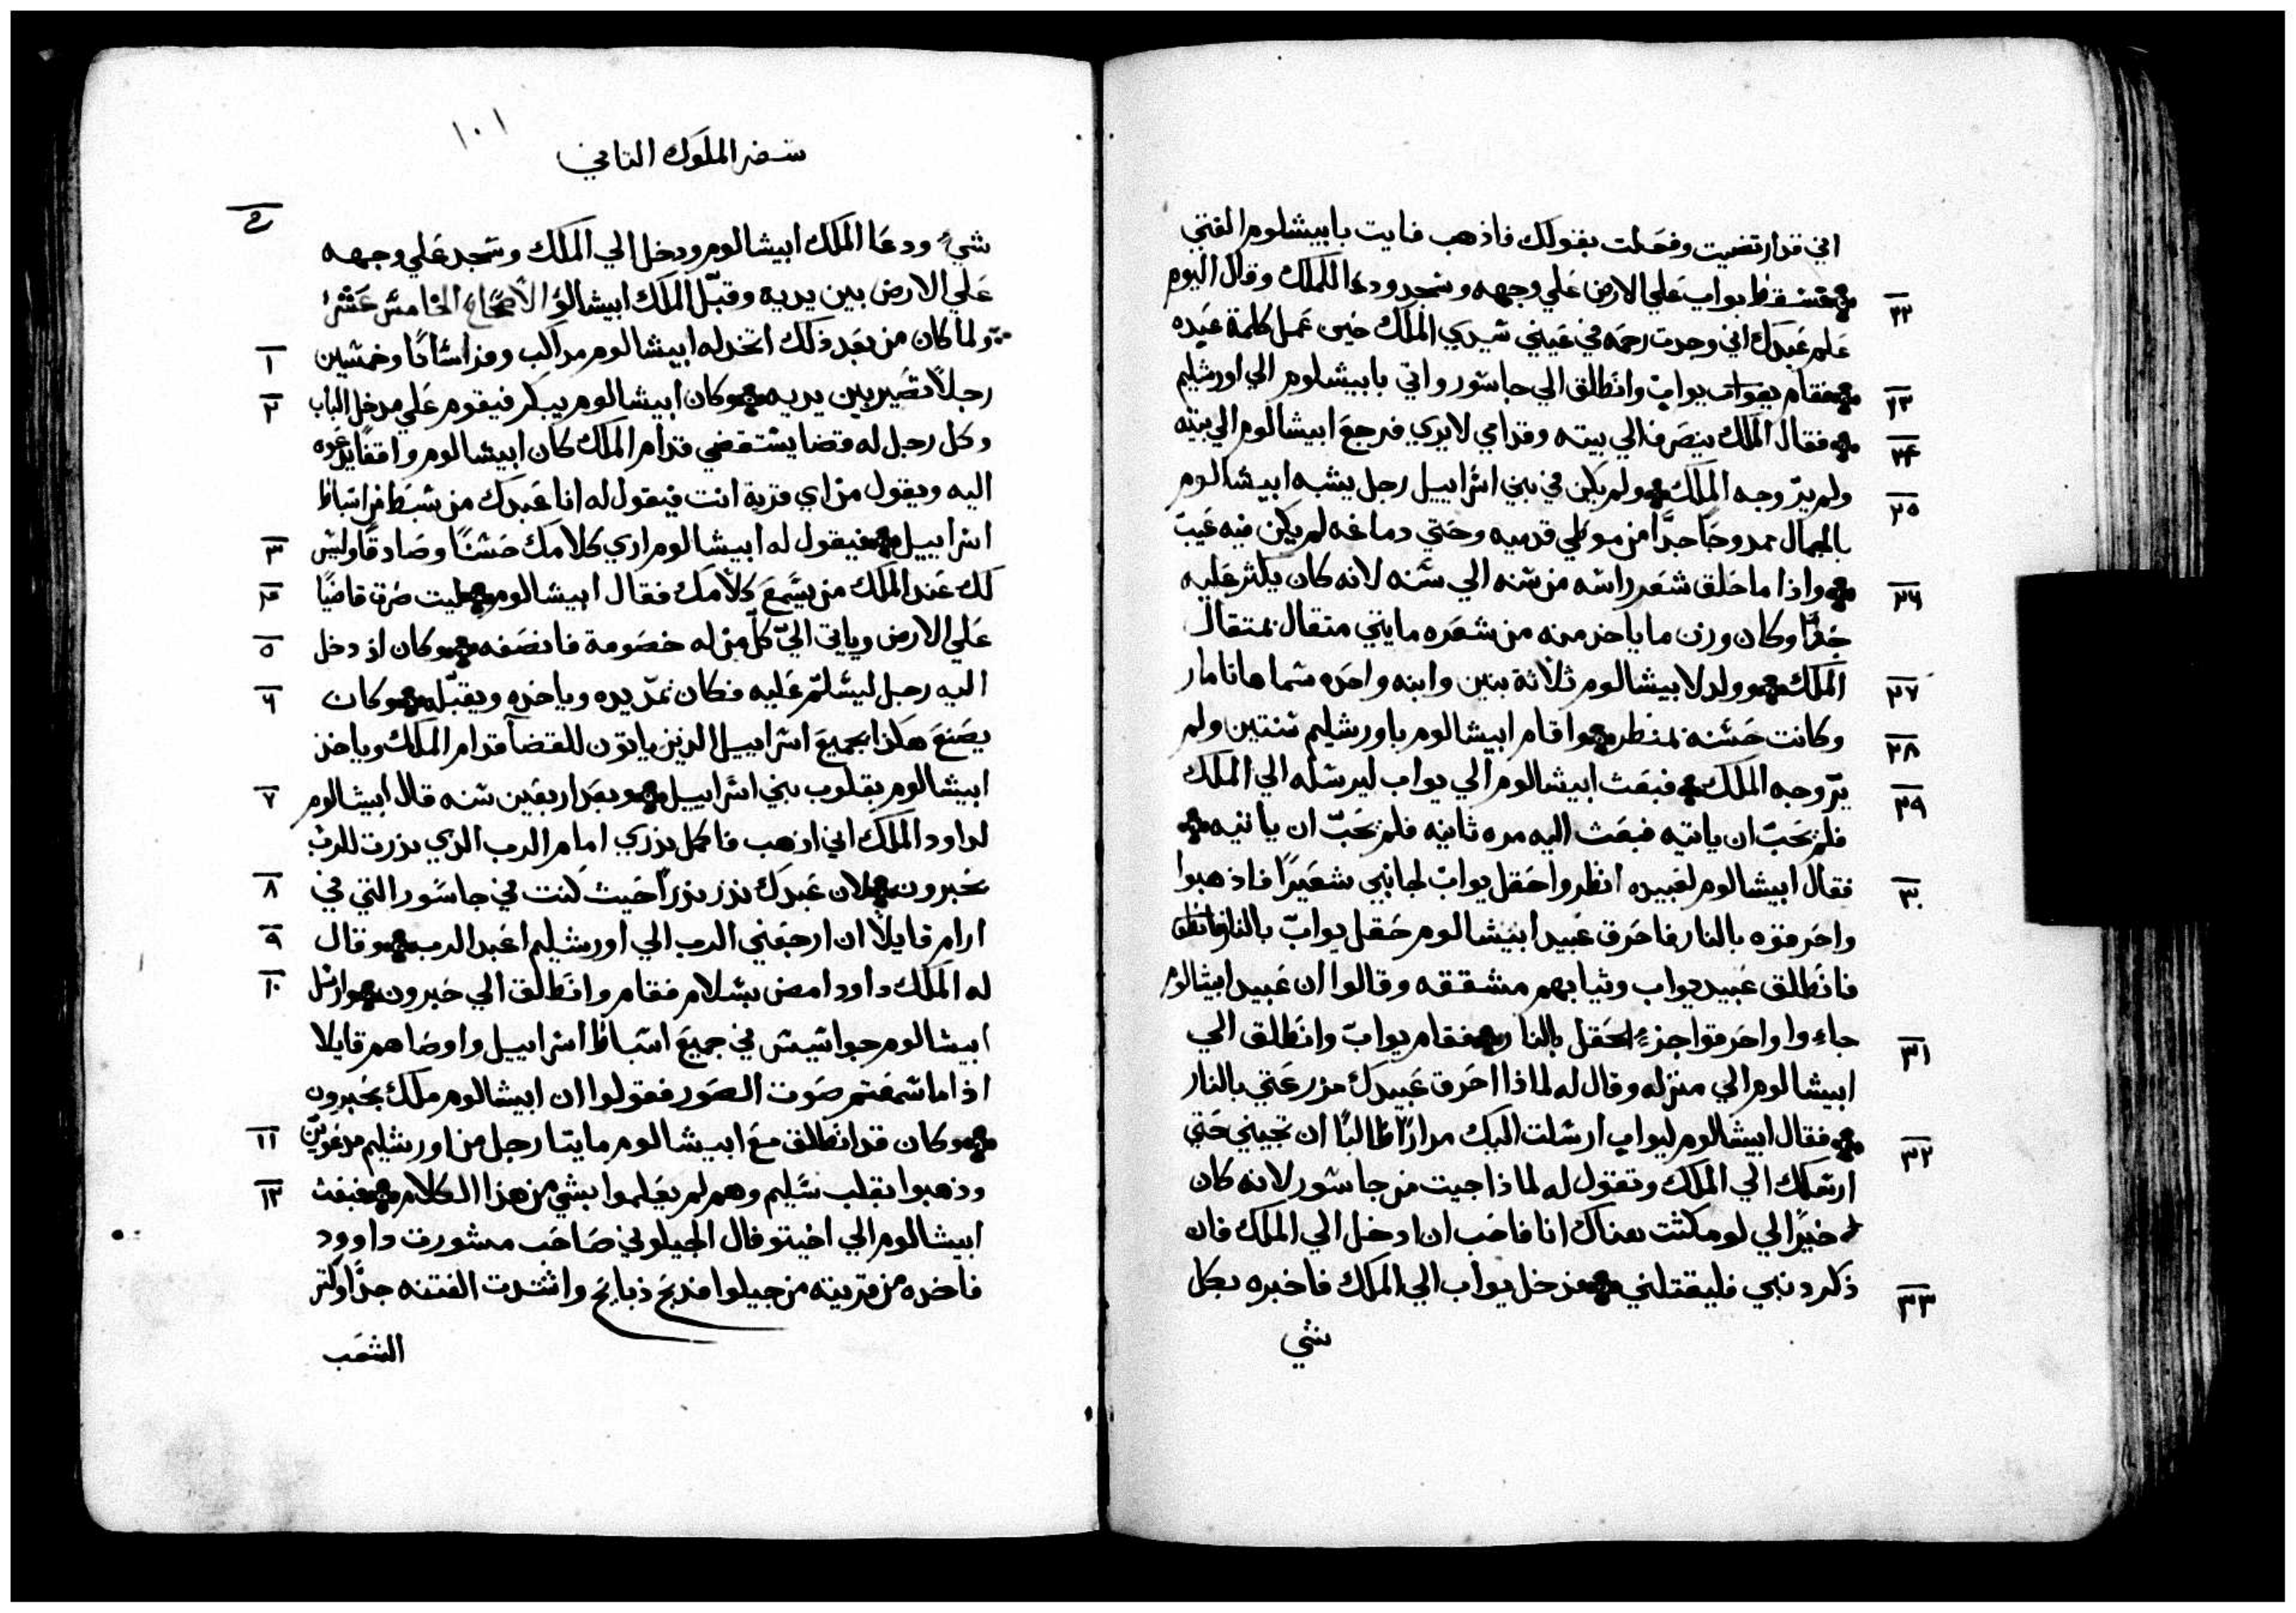 اني قد ارتضيت وفعلت بقولك فاذهب فايت بابيشلوم الفتي
٢٢ فسقط يواب علي الارض علي وجهه وسجد ودعا للملك وقال اليوم
علم عبدك اني وجدت رحمه في عيني سيدي الملك حين عمل كلمة عبده
٢٣ فقام يواب وانطلق الي جاسور واتي بابيشلوم الي اورشليم
٢٤ فقال الملك ينصرف الي بيته وقدامي لا يري فرجع ابيشالوم الي بيته
٢٥ ولم ير وجه الملك ولم يكن في بني اسراييل رجل يشبه ابيشالوم
بالجمال ممدوحا جدا من موطي قدميه وحتي دماغه لم يكن فيه عيب
٢٦ واذا ما حلق شعر راسه من سنه الي سنه لانه كان يكثر عليه
جدا وكان وزن ما ياخذ منه من شعره مايتي متقال بمتقال
٢٧ الملك وولد لابيشالوم ثلاثة بنين وابنه واحده اسمها تامار
٢٨ وكانت حسنه بمنظر واقام ابيشالوم باورشليم سنتين ولم
٢٩ ير وجه الملك فبعث ابيشالوم الي يواب ليرسله الي الملك
فلم يحب ان ياتيه فبعث اليه مره ثانيه فلم يحب ان ياتيه
٣٠ فقال ابيشالوم لعبيده انظروا حقل يواب لجانبي شعيرا فاذهبوا
واحرقوه بالنار فاحرق عبيد ابيشالوم حقل يواب بالنار
فانطلق عبيد يواب وثيابهم مشققه وقالوا ان عبيد ابيشالوم
٣١ جاءوا واحرقوا جزء الحقل بالنار فقام يواب وانطلق الي
ابيشالوم الي منزله وقال له لماذا احرق عبيدك مزرعتي بالنار
٣٢ فقال ابيشالوم ليواب ارسلت اليك مرارا طالبا ان تجيني حتي
ارسلك الي الملك وتقول له لماذا جيت من جاسور لانه كان
خيرا لي لو مكثت هناك انا فاحب ان ادخل الي الملك فان
٣٣ ذكر ذنبي فليقتلني فدخل يواب الي الملك فاخبره بكل
شي
١٠١
سفر الملوك الثاني
شيء ودعا الملك ابيشالوم ودخل الي الملك وسجد علي وجهه
علي الارض بين يديه وقبل الملك ابيشالوم الاصحاح الخامس عشر
١ ولما كان من بعد ذلك اتخذ له ابيشالوم مراكب وفرسانا وخمسين
٢ رجلا تصير بين يديه وكان ابيشالوم يبكر فيقوم علي مدخل الباب
وكل رجل له قضا يستقضي قدام الملك كان ابيشالوم واقفا يدعوه
اليه ويقول من اي قرية انت فيقول له انا عبدك من سبط من اسباط
٣ اسراييل فيقول له ابيشالوم اري كلامك حسنا وصادقا وليس
٤ لك عند الملك من يسمع كلامك فقال ابيشالوم ليت صرت قاضيا
٥ علي الارض وياتي الي كل من له خصومة فانصفه وكان اذ دخل
٦ اليه رجل ليسلم عليه فكان يمد يده وياخذه ويقبله وكان
يصنع هكذا بجميع اسراييل الذين ياتون للقضآ قدام الملك وياخذ
٧ ابيشالوم بقلوب بني اسراييل وبعد اربعين سنه قال ابيشالوم
لداود الملك اني اذهب فاكمل نذري امام الرب الذي نذرت للرب
٨ بحبرون لان عبدك نذر نذرا حيث كنت في جاسور التي في
٩ ارام قايلا ان ارجعني الرب الي اورشليم اعبد الرب وقال
١٠ له الملك داود امض بسلام فقام وانطلق الي حبرون وارسل
ابيشالوم جواسيس في جميع اسباط اسراييل واوصاهم قايلا
اذا ما سمعتم صوت الصور فقولوا ان ابيشالوم ملك بحبرون
١١ وكان قد انطلق مع ابيشالوم مايتا رجل من اورشليم مدعوين
١٢ وذهبوا بقلب سليم وهم لم يعلموا بشي من هذا الكلام فبعث
ابيشالوم الي اخيتوفال الجيلوني صاحب مشورت داوود
فاخذه من قريته من جيلوا فذبح ذبايح واشتدت الفتنه جدا وكثر
الشعب